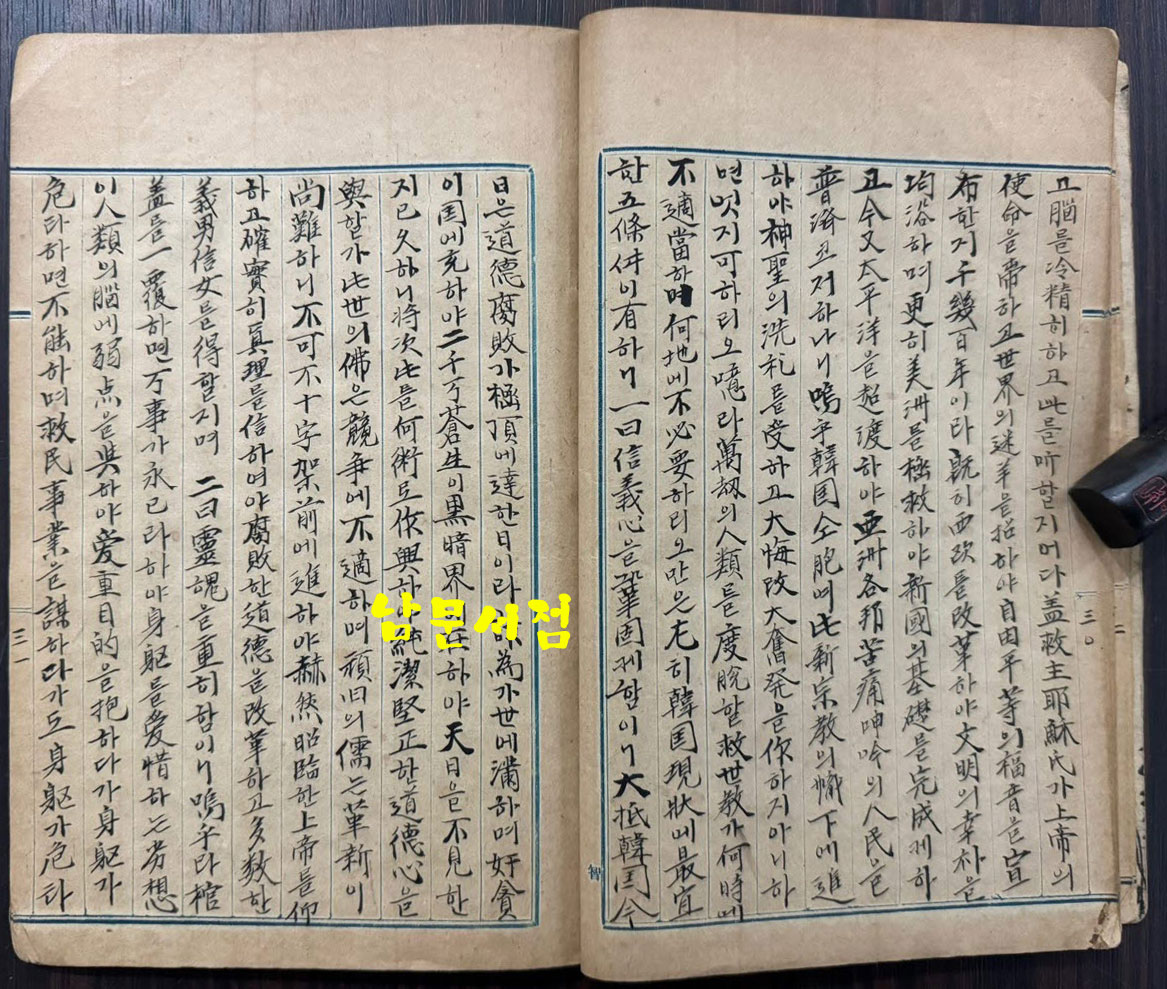 고腦를冷精히하고此를听할지어다盖救主耶穌氏가上帝의
使命을帶하고世界의迷羊을招하야自由平等의福音을宣
布한지千幾百年이라旣히西欧를改革하야文明의幸朴을
均浴하며更히美洲를極救하야新國의基礎를完成케하
고今又太平洋을超渡하야亜洲各邦苦痛呻吟의人民을
普济코저하나니嗚乎韓国仝胞여此新宗教의幟下에進
하야神聖의洗礼를受하고大悔改大奮発을作하지아니하
면엇지可하리오噫라萬劫의人類를度脫할救世敎가何時에
不適當하며何地에不必要하리오만은尤히韓国現狀에最宜
한五條件이有하니一曰信義心을鞏固케함이니大抵韓国今
三〇
智
日은道德腐敗가極頂에達한日이라 為가世에滿하며奸貪
이国에充하야二千万蒼生이黒暗界 在하야天日을不見한
지已久하니將次此를何術로作興하야純潔堅正한道德心을
與할가此世의佛은競争에不適하며頑旧의儒는革新이
尚難하니不可不十字架前에進하야赫然昭臨한上帝를仰
하고確實히真理를信하여야腐敗한道德을改革하고多数한
義男信女를得할지며二曰靈魂을重히함이니嗚乎라棺
盖를一覆하면万事가永已라하야身躯를愛惜하는劣想
이人類의腦에弱点을與하야愛重目的을抱하다가身躯가
危타하면不能하며救民事業을謀하다가도身躯가危타
三一
남문서점